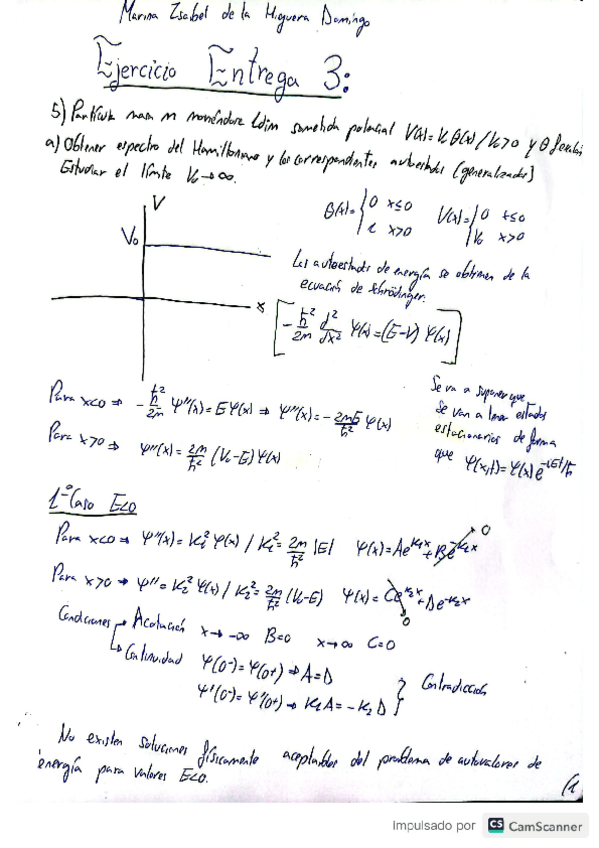 Marina Isabel de la Higuera Domingo
Ejercicio Entrega 3:
5) Partícula masa m moviéndose 1dim sometida potencial V(x)=V₀ θ(x) / V₀>0 y θ
a) Obtener espectro del Hamiltoniano y los correspondientes autoestados (generalizados)
Estudiar el límite V₀→∞.
V
V₀
x
θ(x)={0 x≤0
1 x>0
V(x)={0 x≤0
V₀ x>0
Los autoestados de energía se obtienen de la
ecuación de Schrödinger:
[-ℏ²/2m d²/dx² Ψ(x)=(E-V) Ψ(x)]
Para x<0 ⇒ -ℏ²/2m Ψ''(x)=EΨ(x) ⇒ Ψ''(x)=-2mE/ℏ² Ψ(x)
Para x>0 ⇒ Ψ''(x)=2m/ℏ² (V₀-E)Ψ(x)
Se va a suponer que
se van a tener estados
estacionarios de forma
que Ψ(x,t)=Ψ(x)e^-iEt/ℏ
1º Caso E<0
Para x<0 ⇒ Ψ''(x)=K₁² Ψ(x) / K₁²=2m/ℏ² |E| Ψ(x)=Ae^K₁x+Be^-K₁x 0
Para x>0 ⇒ Ψ''=K₂² Ψ(x) / K₂²=2m/ℏ² (V₀-E) Ψ(x)=Ce^K₂x+De^-K₂x
0
Condiciones → Acotación x→-∞ B=0 x→∞ C=0
↳ Continuidad Ψ(0⁻)=Ψ(0⁺) ⇒ A=D
Ψ'(0⁻)=Ψ'(0⁺) ⇒ K₁A=-K₂D } Contradicción
No existen soluciones físicamente aceptables del problema de autovalores de
energía para valores E<0.
(1
Impulsado por CS CamScanner